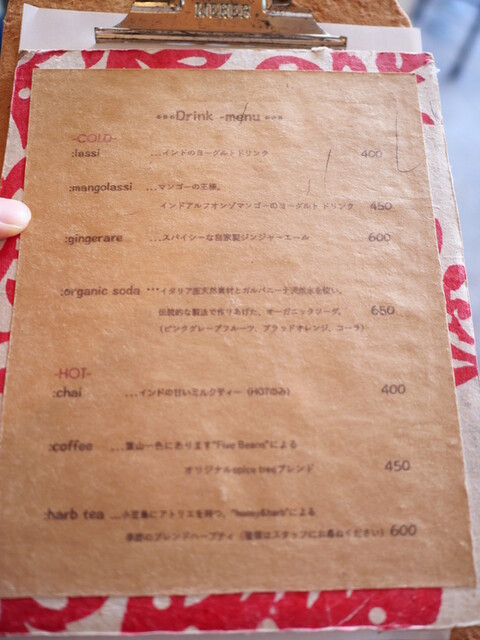 ***Drink -menu ***
-COLD-
:lassi ...インドのヨーグルトドリンク 400
:mangolassi ...マンゴーの王様。
インドアルフォンゾマンゴーのヨーグルト ドリンク 450
:gingerare ...スパイシーな自家製ジンジャーエール 600
:organic soda ***イタリア産天然素材とガルバニーナ天然水を使い、
伝統的な製法で作りあげた、オーガニックソーダ。 650
(ピンクグレープフルーツ、ブラッドオレンジ、コーラ)
-HOT-
:chai ...インドの甘いミルクティー (HOTのみ) 400
:coffee ...葉山一色にあります"Five Beans"による
オリジナルspice treeブレンド 450
:harb tea ...小豆島にアトリエを持つ、 による
季節のブレンドハーブティ (種類はスタッフにお尋ねください) 600